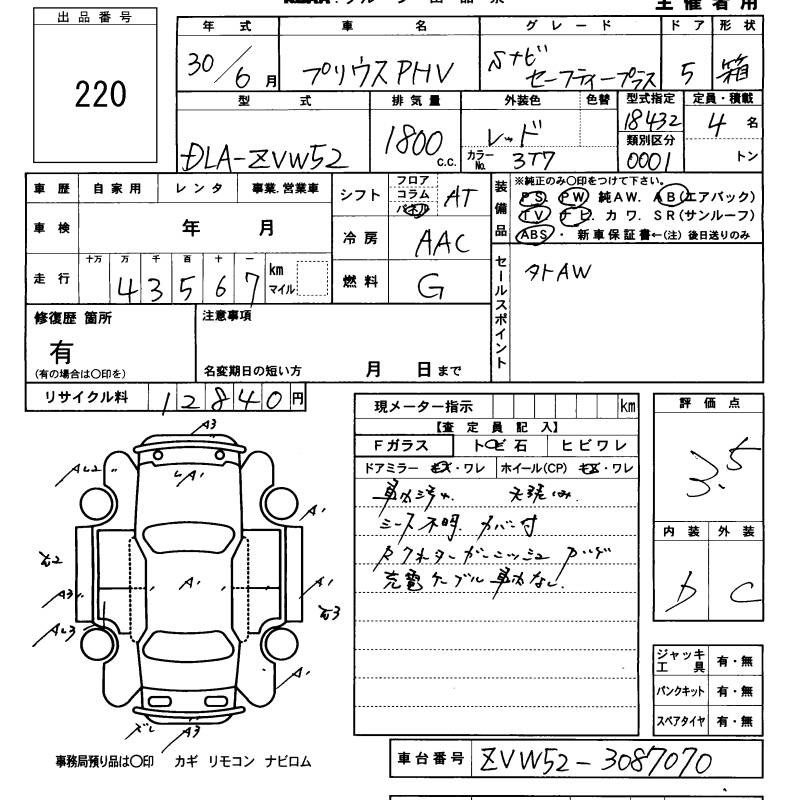 出品番号
220
主催者用
年式 車名 グレード ドア 形状
30/6月 プリウスPHV Sナビ セーフティープラス 5 箱
型式 排気量 外装色 色替 型式指定 定員・積載
DLA-ZVW52 1800 c.c. レッド 18432 4 名
カラーNo. 3T7 類別区分 0001 トン
車歴 自家用 レンタ 事業.営業車
車検 年 月
走行 十万 万 千 百 十 一 km マイル
43567
シフト フロア コラム パネル AT
冷房 AAC
燃料 G
装備品 ※純正のみ〇印をつけて下さい。
PS. PW. 純AW. AB(エアバック)
TV. ナビ. カワ. SR(サンルーフ)
ABS・ 新車保証書←(注) 後日送りのみ
セールスポイント
タトAW
修復歴 箇所
有
(有の場合は〇印を)
注意事項
名変期日の短い方 月 日まで
リサイクル料 12840円
現メーター指示 km
【査定員記入】
Fガラス トビ石 ヒビワレ
ドアミラー キズ・ワレ ホイール(CP) キズ・ワレ
車内汚れ
シース不明 カバー付
充電ケーブル車内なし
評価点
3.5
内装 外装
b C
ジャッキ工具 有・無
パンクキット 有・無
スペアタイヤ 有・無
A3
AL2
LA'
A'
A'
A'
A3
AL3
A'
A3
事務局預り品は〇印 カギ リモコン ナビロム
車台番号 ZVW52-3087070